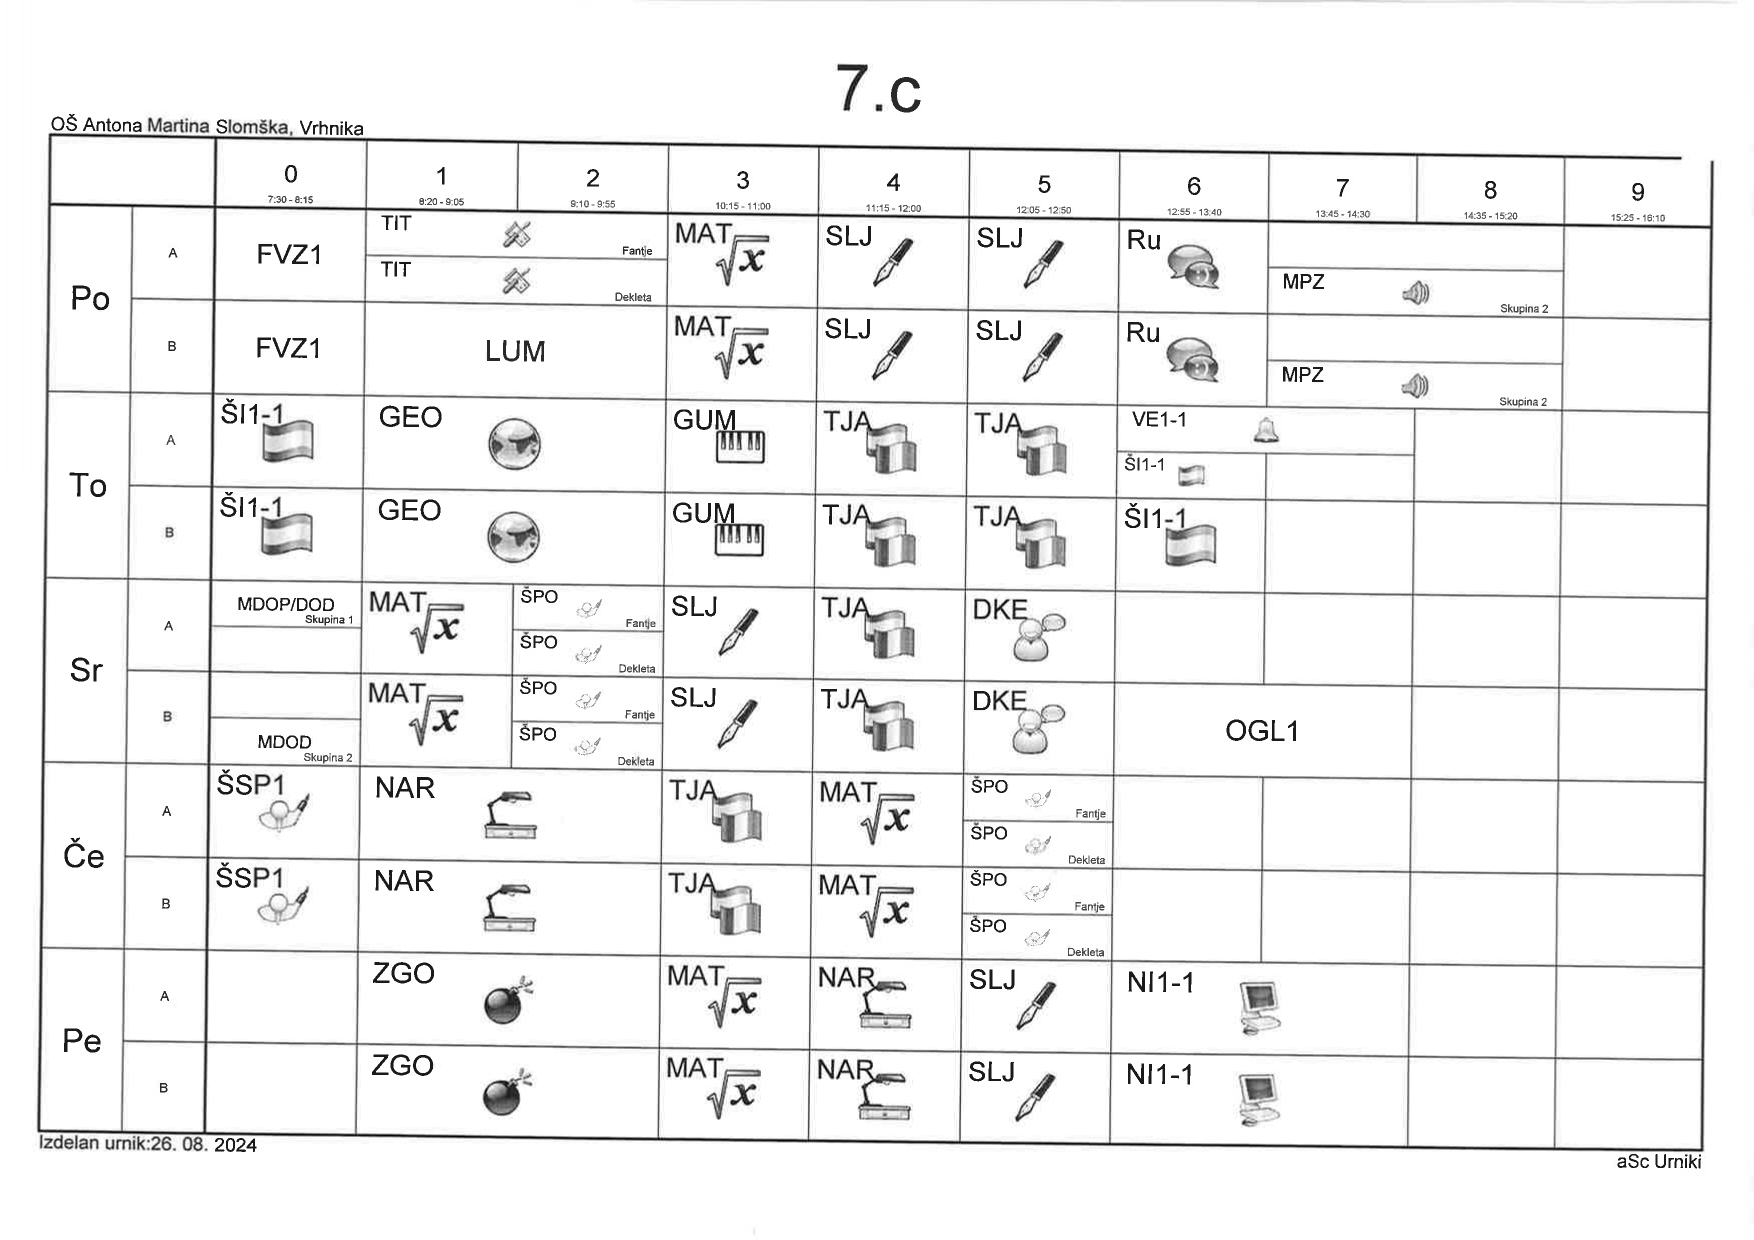 7.c
OŠ Antona Martina Slomška, Vrhnika
0 1 2 3 4 5 6 7 8 9
7:30 - 8:15 8:20 - 9:05 9:10 - 9:55 10:15 - 11:00 11:15 - 12:00 12:05 - 12:50 12:55 - 13:40 13:45 - 14:30 14:35 - 15:20 15:25 - 16:10
Po
A
FVZ1
TIT
Fantje
TIT
Dekleta
MAT
SLJ
SLJ
Ru
MPZ
Skupina 2
B
FVZ1
LUM
MAT
SLJ
SLJ
Ru
MPZ
Skupina 2
To
A
ŠI1-1
GEO
GUM
TJA
TJA
VE1-1
ŠI1-1
B
ŠI1-1
GEO
GUM
TJA
TJA
ŠI1-1
Sr
A
MDOP/DOD
Skupina 1
MAT
ŠPO
Fantje
ŠPO
Dekleta
SLJ
TJA
DKE
B
MDOD
Skupina 2
MAT
ŠPO
Fantje
ŠPO
Dekleta
SLJ
TJA
DKE
OGL1
Če
A
ŠSP1
NAR
TJA
MAT
ŠPO
Fantje
ŠPO
Dekleta
B
ŠSP1
NAR
TJA
MAT
ŠPO
Fantje
ŠPO
Dekleta
Pe
A
ZGO
MAT
NAR
SLJ
NI1-1
B
ZGO
MAT
NAR
SLJ
NI1-1
Izdelan urnik:26. 08. 2024
aSc Urniki